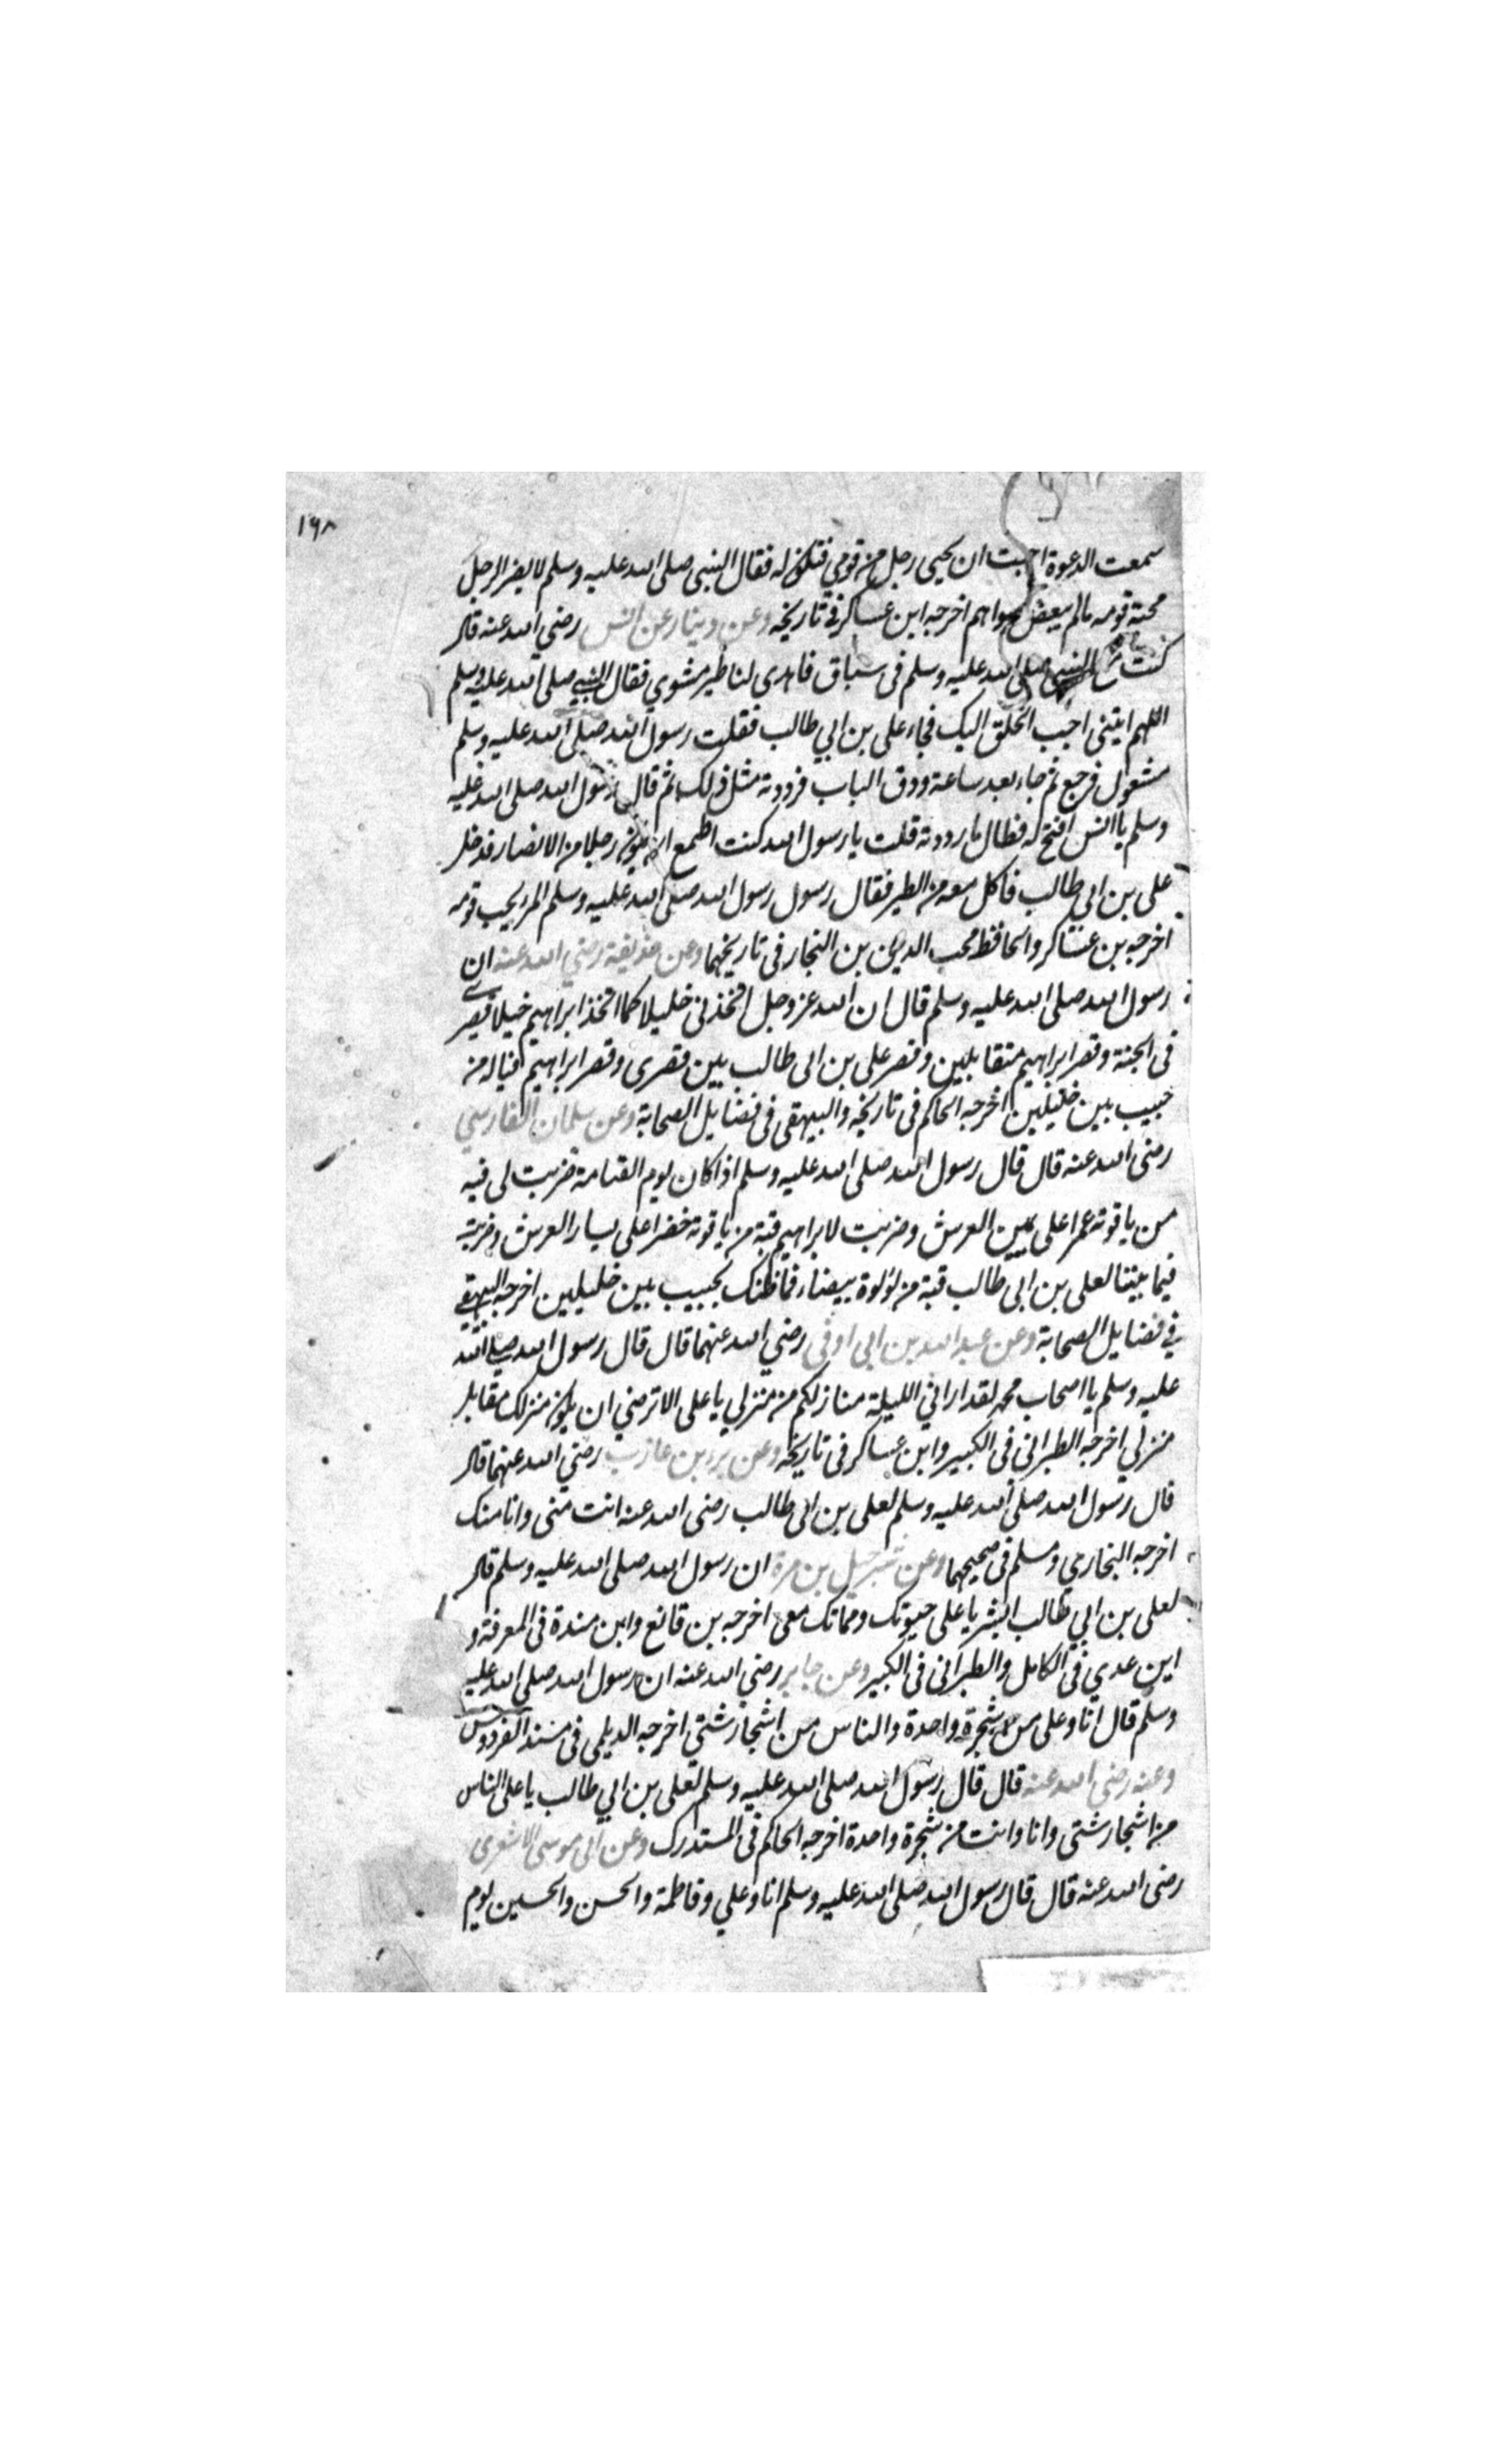 ١٦٨
سمعت الدعوة احببت ان يجيى رجل من قومي فتكون له فقال النبى صلى الله عليه وسلم لا يضر الرجل
محبة قومه مالم يبغض سواهم اخرجه ابن عساكر فى تاريخه وعن دينار عن انس رضي الله عنه قال
كنت مع النبى صلى الله عليه وسلم فى سباق فاهدى لنا طير مشوي فقال النبي صلى الله عليه وسلم
اللهم ايتنى احب الخلق اليك فجاء على بن ابي طالب فقلت رسول الله صلى الله عليه وسلم
مشغول فرجع ثم جاء بعد ساعة ودق الباب فرددته مثل ذلك ثم قال رسول الله صلى الله عليه
وسلم يا انس افتح له فطال ما رددته قلت يا رسول الله كنت اطمع ان يكون رجلا من الانصار فدخل
على بن ابي طالب فاكل معه من الطير فقال رسول رسول الله صلى الله عليه وسلم المرء يحب قومه
اخرجه بن عساكر والحافظ محب الدين بن النجار فى تاريخهما وعن حذيفة رضي الله عنه ان
رسول الله صلى الله عليه وسلم قال ان الله عز وجل اتخذنى خليلا كما اتخذ ابراهيم خليلا فقصرى
فى الجنة وقصر ابراهيم متقابلين وقصر على بن ابى طالب بين قصرى وقصر ابراهيم فياله من
حبيب بين خليلين اخرجه الحاكم فى تاريخه والبيهقى فى فضايل الصحابة وعن سلمان الفارسي
رضى الله عنه قال قال رسول الله صلى الله عليه وسلم اذا كان يوم القيامة ضربت لى قبه
من ياقوته حمرا على يمين العرش وضربت لابراهيم قبة من ياقوتة خضرا على يسار العرش وضربت
فيما بيننا لعلى بن ابى طالب قبة من لؤلوة بيضاء فما ظنك بحبيب بين خليلين اخرجه البيهقي
في فضايل الصحابة وعن عبد الله بن ابى اوفى رضي الله عنهما قال قال رسول الله صلى الله
عليه وسلم يا اصحاب محمد لقد اراني الليلة منازلكم من منزلي يا على الا ترضي ان يكون منزلك مقابل
منزلي اخرجه الطبرانى فى الكبير وابن عساكر فى تاريخه وعن بريد بن عازب رضي الله عنهما قال
قال رسول الله صلى الله عليه وسلم لعلى بن ابى طالب رضى الله عنه انت منى وانا منك
اخرجه البخاري ومسلم فى صحيحهما وعن شرحبيل بن مرة ان رسول الله صلى الله عليه وسلم قال
لعلى بن ابي طالب ابشر يا على حيوتك ومماتك معى اخرجه بن قانع وابن مندة فى المعرفة و
ابن عدي فى الكامل والطبرانى فى الكبير وعن جابر رضي الله عنه ان رسول الله صلى الله عليه
وسلم قال انا وعلى من شجرة واحدة والناس من اشجار شتي اخرجه الديلمى فى مسند الفردوس
وعنه رضى الله عنه قال قال رسول الله صلى الله عليه وسلم لعلى بن ابي طالب يا على الناس
من اشجار شتى وانا وانت من شجرة واحدة اخرجه الحاكم فى المستدرك وعن ابى موسى الاشعرى
رضى الله عنه قال قال رسول الله صلى الله عليه وسلم انا وعلي وفاطمة والحسن والحسين يوم